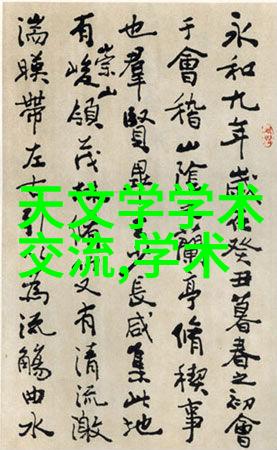 永和九年歲在癸丑暮春之初會
于會稽山陰之蘭亭脩稧事
也羣賢畢至少長咸集此地
有崇山峻領茂林脩竹又有清流激
湍暎帶左右引以為流觴曲水
天文学学术
交流,学术